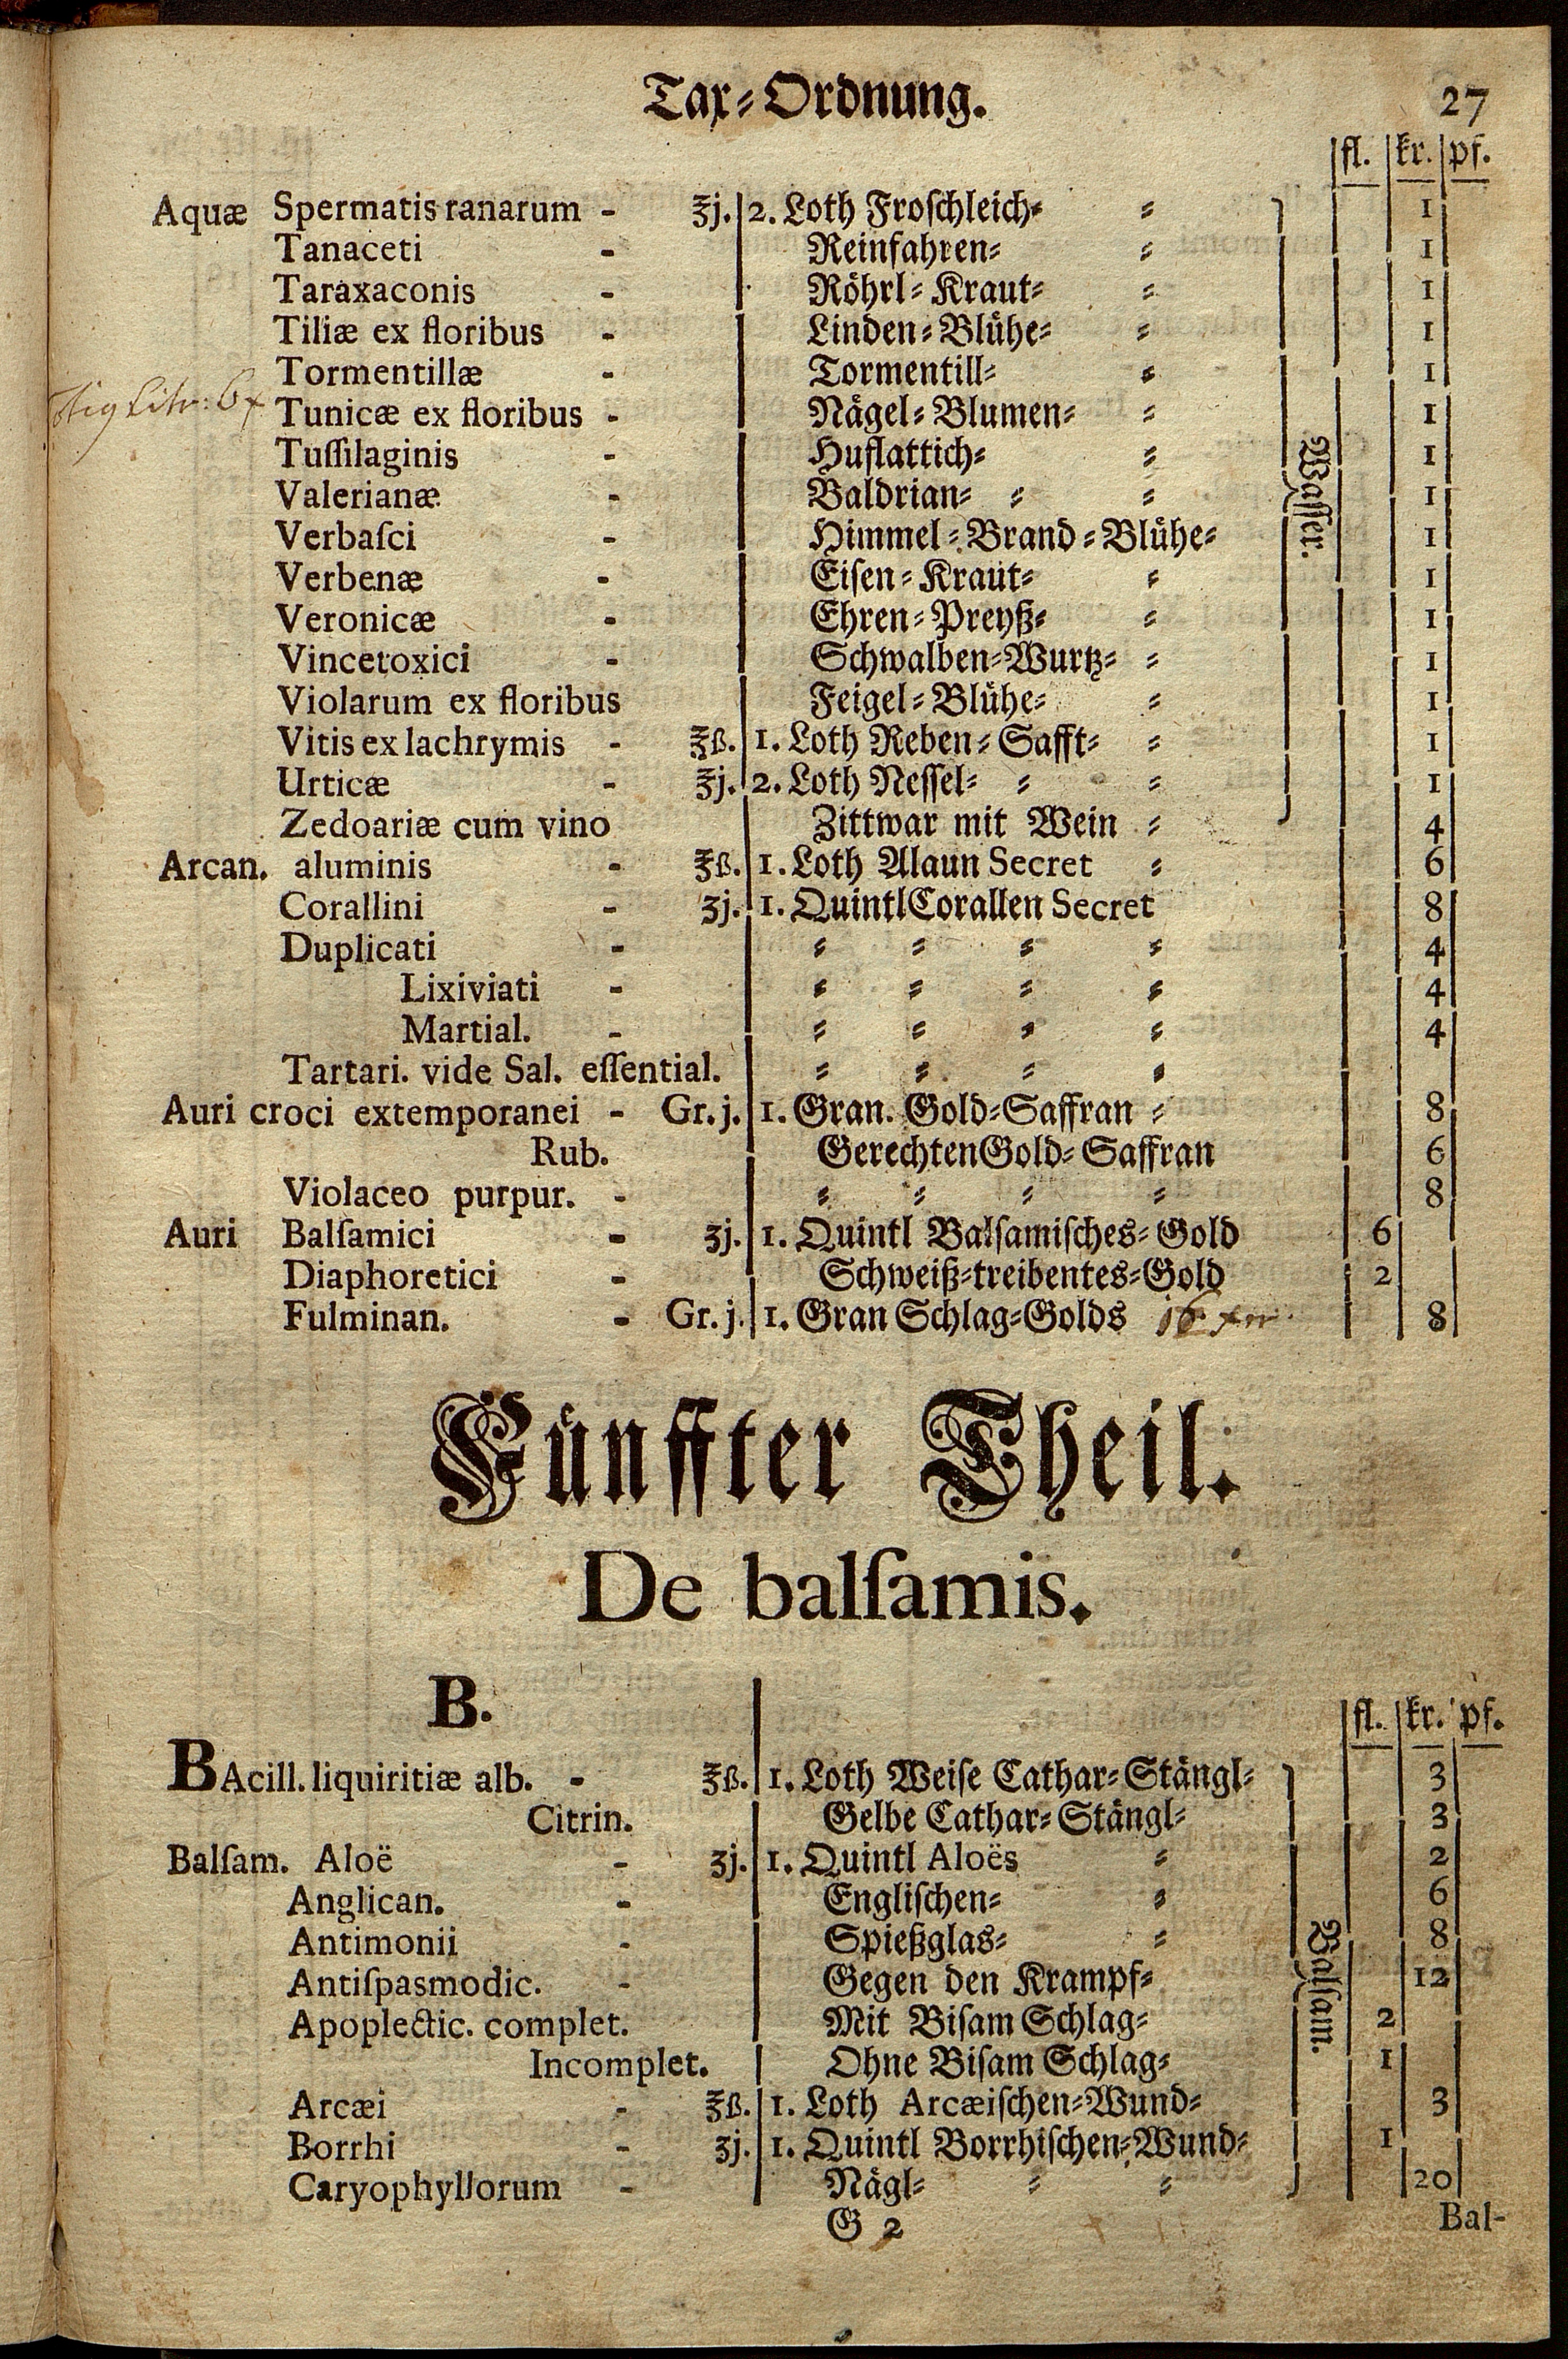 Tax⸗Ordnung. 27
fl. kr. pf.
Aquæ Spermatis ranarum - ʒj. 2. Loth Froſchleich⸗ ⸗ 1
Tanaceti - Reinfahren⸗ ⸗ 1
Taraxaconis - Röhrl⸗Kraut⸗ ⸗ 1
Tiliæ ex floribus - Linden⸗Blühe⸗ ⸗ 1
Tormentillæ - Tormentill⸗ ⸗ 1
Tunicæ ex floribus - Nägel⸗Blumen⸗ ⸗ 1
Tuſſilaginis - Huflattich⸗ ⸗ 1
Valerianæ - Baldrian⸗ ⸗ ⸗ 1
Waſſer.
Verbaſci - Himmel⸗Brand⸗Blühe⸗ 1
Verbenæ - Eiſen⸗Kraut⸗ ⸗ 1
Veronicæ - Ehren⸗Preyß⸗ ⸗ 1
Vincetoxici - Schwalben⸗Wurtz⸗ ⸗ 1
Violarum ex floribus Feigel⸗Blühe⸗ ⸗ 1
Vitis ex lachrymis - ℥ß. 1. Loth Reben⸗Safft⸗ ⸗ 1
Urticæ - ℥j. 2. Loth Neſſel⸗ ⸗ ⸗ 1
Zedoariæ cum vino Zittwar mit Wein ⸗ 4
Arcan. aluminis - ℥ß. 1. Loth Alaun Secret ⸗ 6
Corallini - ʒj. 1. Quintl Corallen Secret 8
Duplicati - ⸗ ⸗ ⸗ ⸗ 4
Lixiviati - ⸗ ⸗ ⸗ ⸗ 4
Martial. - ⸗ ⸗ ⸗ ⸗ 4
Tartari. vide Sal. eſſential. ⸗ ⸗ ⸗ ⸗
Auri croci extemporanei - Gr. j. 1. Gran. Gold⸗Saffran ⸗ 8
Rub. Gerechten Gold⸗Saffran 6
Violaceo purpur. - ⸗ ⸗ ⸗ ⸗ 8
Auri Balſamici - ʒj. 1. Quintl Balſamiſches⸗Gold 6
Diaphoretici - Schweiß⸗treibentes⸗Gold 2
Fulminan. - Gr. j. 1. Gran Schlag⸗Golds 16 8
Fünffter Theil.
De balſamis.
B.
fl. kr. pf.
BAcill. liquiritiæ alb. - ℥ß. 1. Loth Weiſe Cathar⸗Stängl⸗ 3
Citrin. Gelbe Cathar⸗Stängl⸗ 3
Balſam. Aloë - ʒj. 1. Quintl Aloës ⸗ 2
Anglican. - Engliſchen⸗ ⸗ 6
Antimonii - Spießglas⸗ ⸗ 8
Balſam.
Antiſpasmodic. - Gegen den Krampf⸗ 12
Apoplectic. complet. Mit Biſam Schlag⸗ 2
Incomplet. Ohne Biſam Schlag⸗ 1
Arcæi - ℥ß. 1. Loth Arcæiſchen⸗Wund⸗ 3
Borrhi - ʒj. 1. Quintl Borrhiſchen⸗Wund⸗ 1
Caryophyllorum - Nägl⸗ ⸗ ⸗ 20
G 2 Bal-